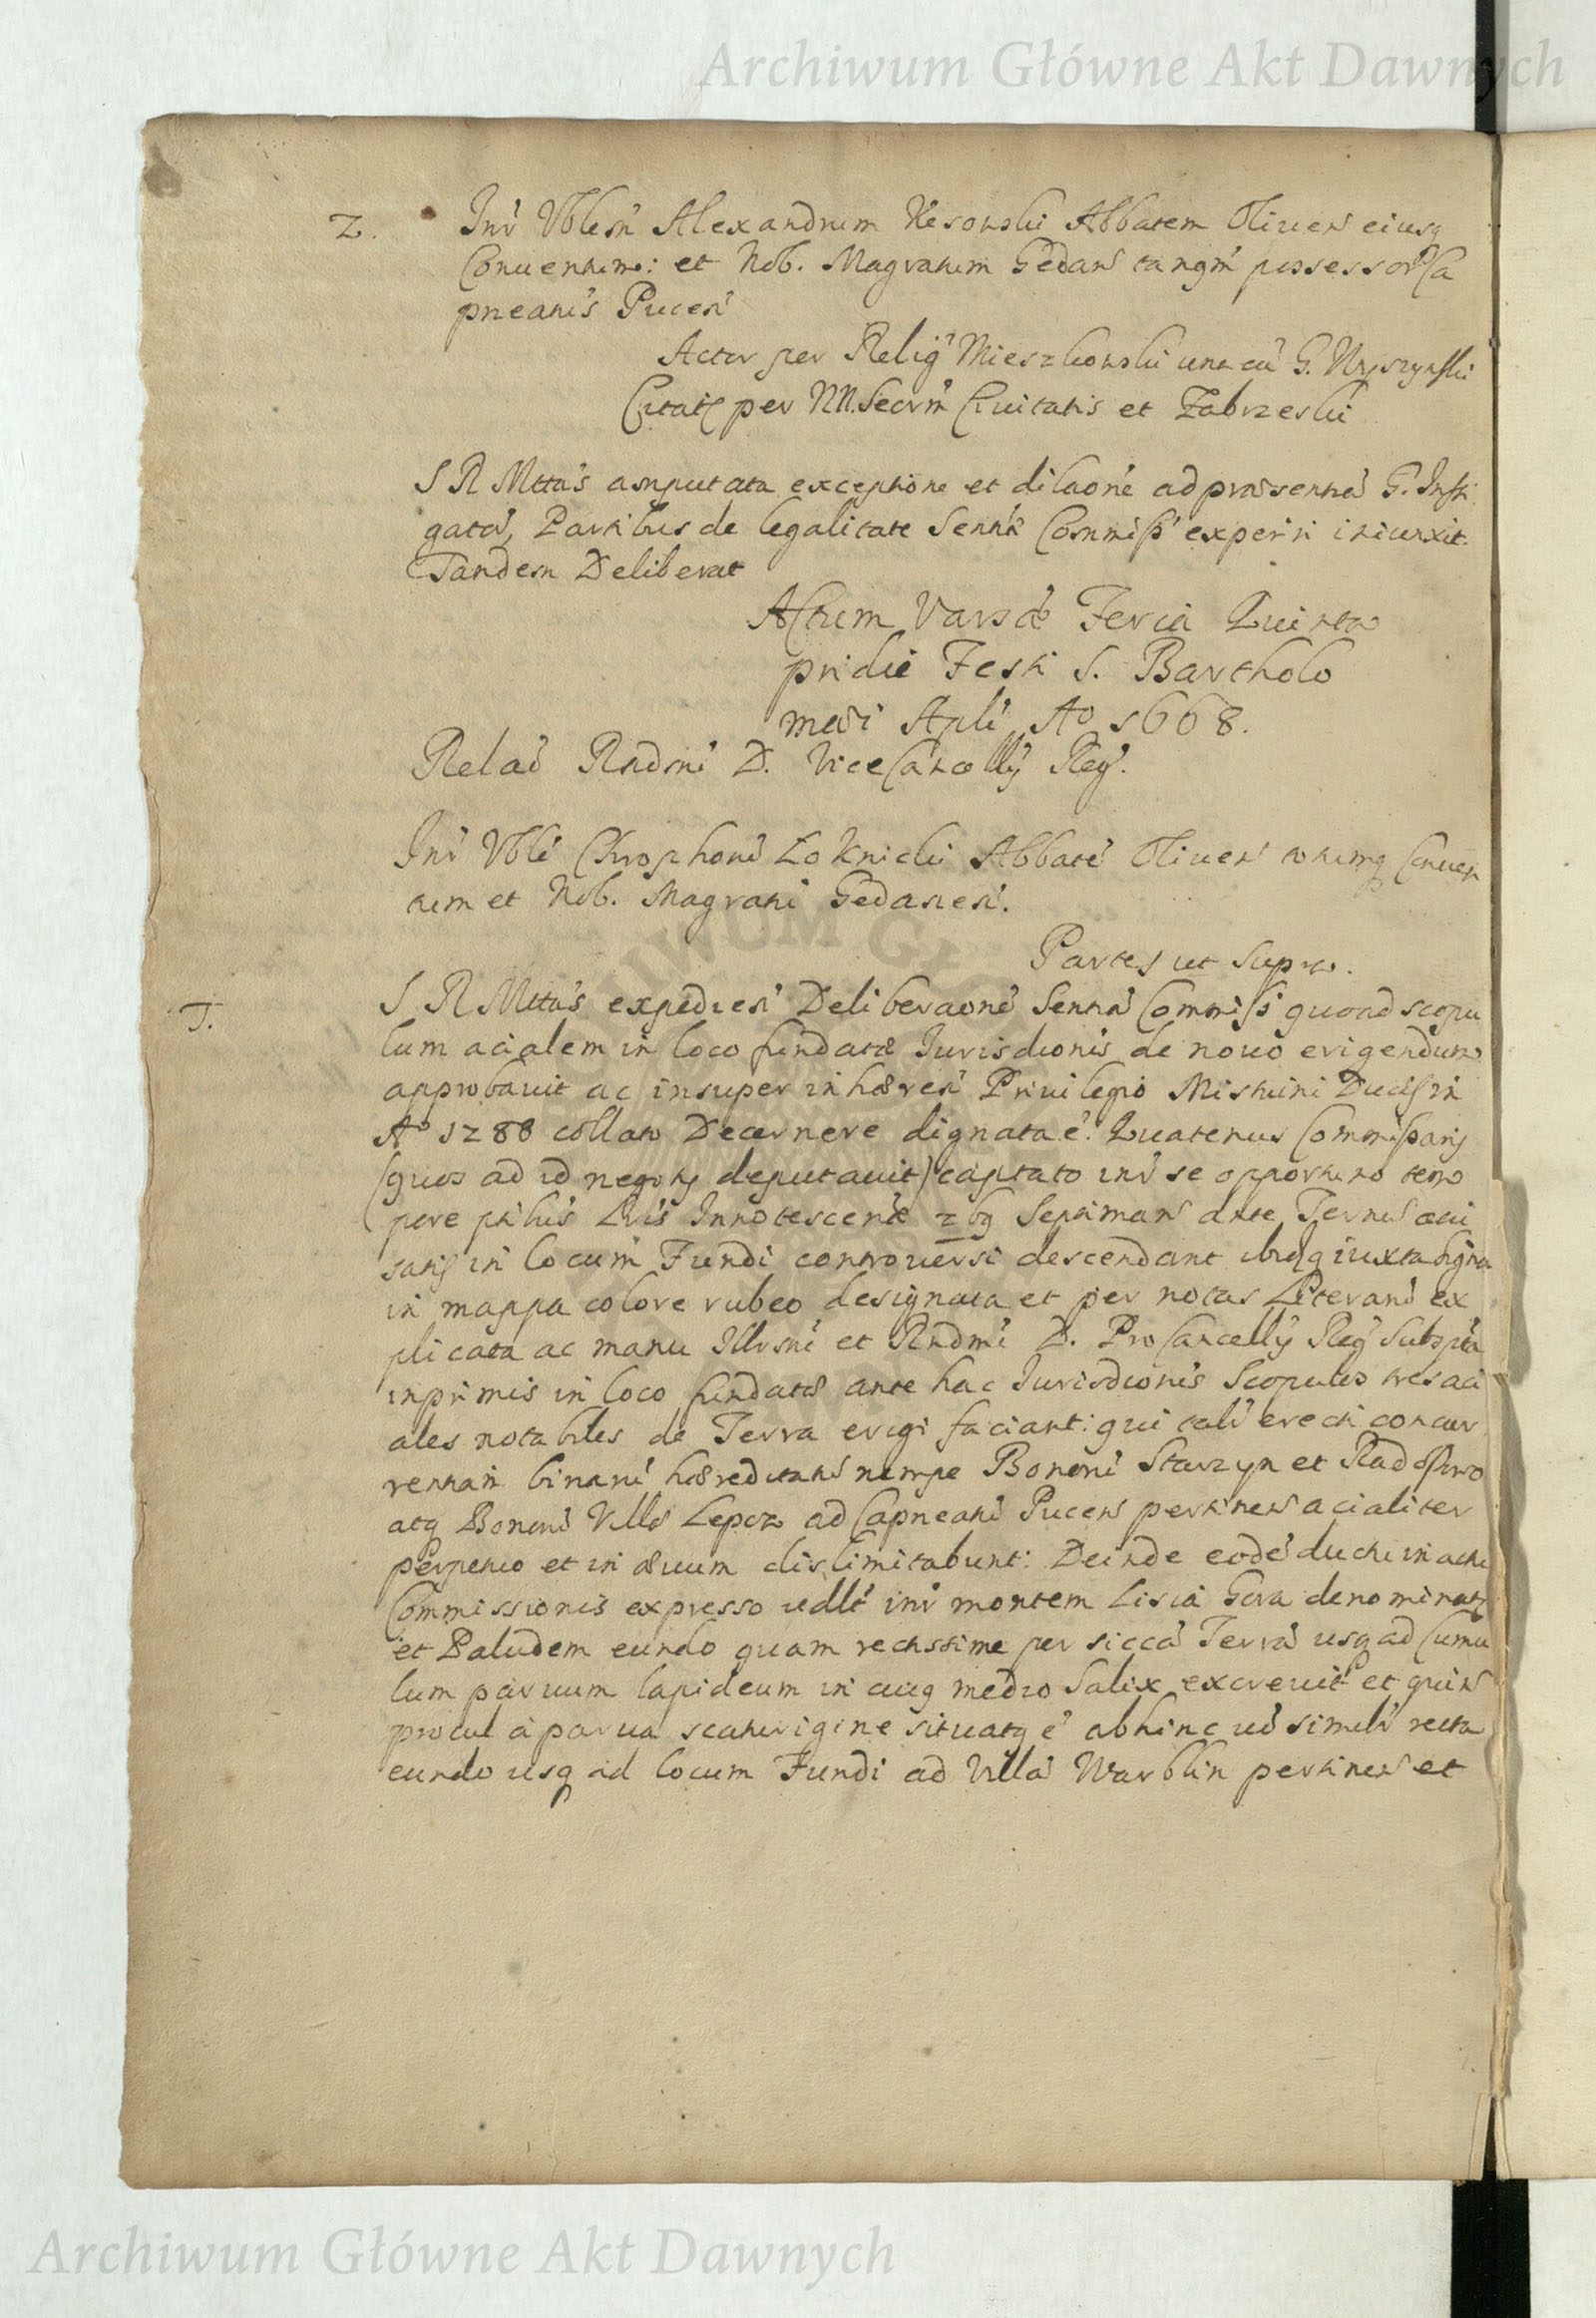 Archiwum Główne Akt Dawnych
2. Inr̃ Vblem̃ Alexandrum Kesowski Abbatem Oliuen̄ eiusq
Conuentum: et Nob. Magratum Gedan̄ tanqm̃ possessor̃ Ca
pneatus Pucen̄
Actor per Relig̃ Mieszkowski una cũ G.
Citati per NN. Secrm̃ Ciuitatis et Zabrzeski
S R Mttas amputata exceptione et dilaone ad praesentiã G. Insti
gator̃, Partibus de legalitate Sentiae Commiss̃ experiri iniunxit.
Tandem Deliberat
Actum Varsae Feria Quinta
pridie Festi S. Bartholo
maei Apli Ao 1668.
Relaõ Rndmi D. ViceCancellij Reg̃.
Inr̃ Vble Chrophorũ Loknicki Abbatẽ Oliuen̄ totumq Conuen
tum et Nob. Magratũ Gedanen̄.
Partes ut Supra.
T. S R Mttas expedien̄ Deliberaonẽ Sentiã Commiss̃ quoad scopu
lum acialem in loco fundatae Jurisdionis de nouo erigendum
approbauit ac insuper inhaeren̄ Priuilegio Mistuini Ducis in
Ao 1288 collato Decernere dignata ẽ. Quatenus Commissarij
(quos ad id negotij deputauit) captato inr̃ se opportuno tem
pore ptibus Lris Innotescentiae 2bq Septiman̄ ante Ternũ
in locum Fundi controuersi descendant ibidq iuxta signa
in mappa colore rubeo designata et per notas Literarũ ex
plicata ac manu Illrmi et Rndmi D. ProCancellij Reg̃ Subsptã
inprimis in loco fundatae ante hac Jurisdionis Scopulos tres aci
ales notabiles de Terra erigi faciant: qui talr̃ erecti concur
rentiã binarũ haereditatũ nempe Bonorũ Starzyn et Radoszewo
atq Bonorũ Villae Lepcz ad Capneatũ Pucen̄ pertinen̄ acialiter
perpetuo et in aeuum dislimitabunt: Deinde eodẽ ductu in actu
Commissionis expresso uidlt inr̃ montem Lisia Gora denominatũ
et Paludem eundo quam rectissime per siccã Terrã usq ad Cumu
lum paruum lapideum in cuiq medio Salix excreuit et
procul a parua scaturigine situatq ẽ abhinc uõ similr̃ recta
eundo usq ad locum Fundi ad Villã Warblin pertinen̄ et
Archiwum Główne Akt Dawnych